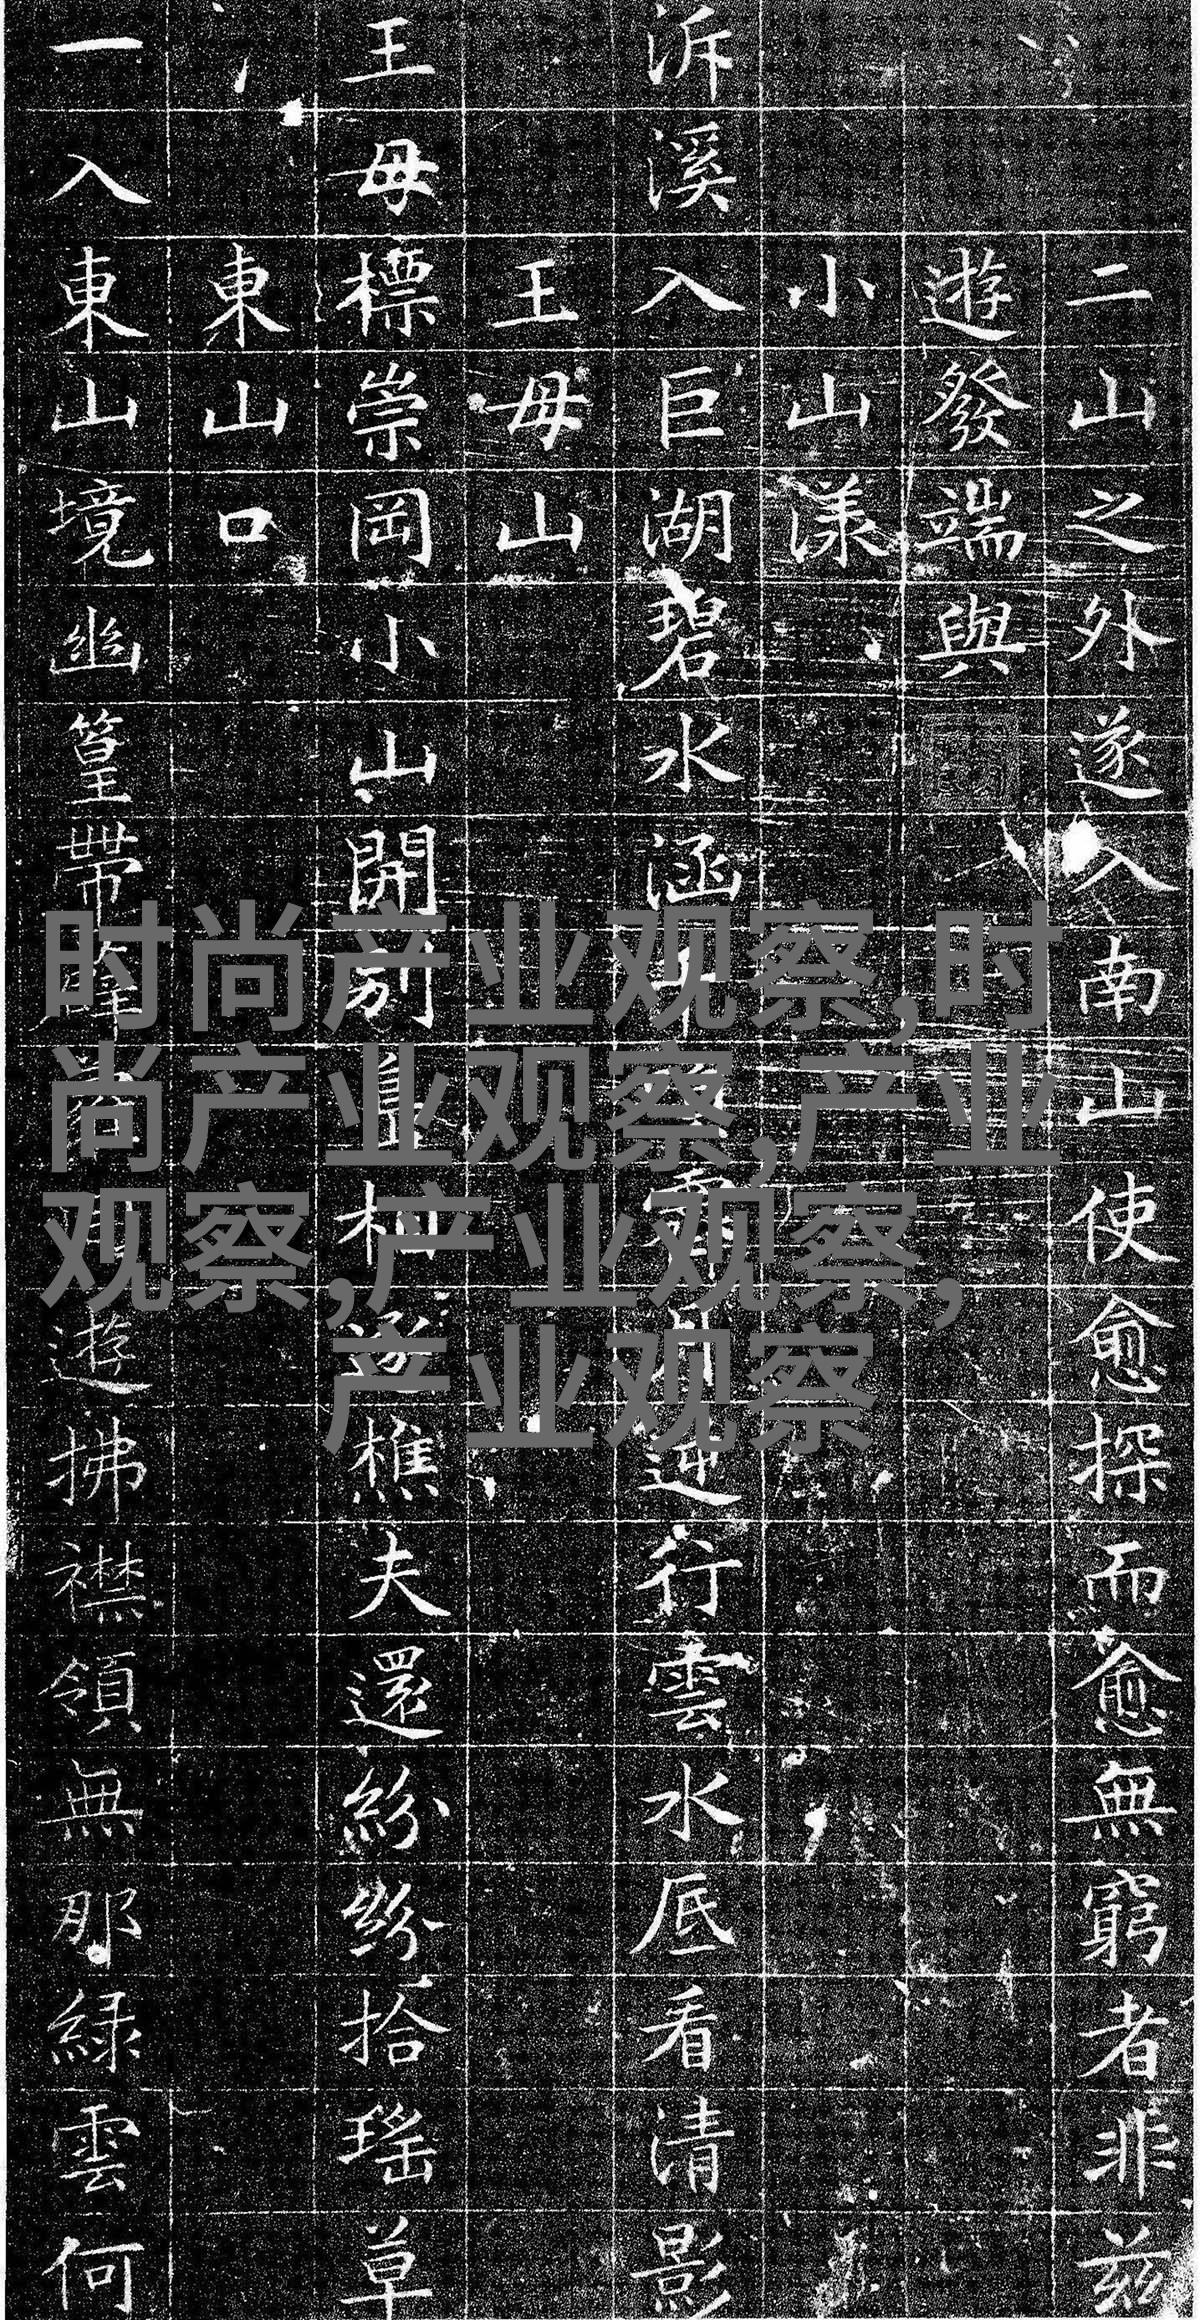 二山之外遂入南山使愈探而愈無窮者非茲
遊發端與
小山漾
泝溪入巨湖碧水涵行雲水底看清影
王母山
王母標崇岡小山開別樵夫還紛紛拾瑤草
東山口
一入東山境幽篁帶遊拂襟領無那綠雲何
时尚产业观察,时
尚产业观察,产业
观察,产业观察,
产业观察